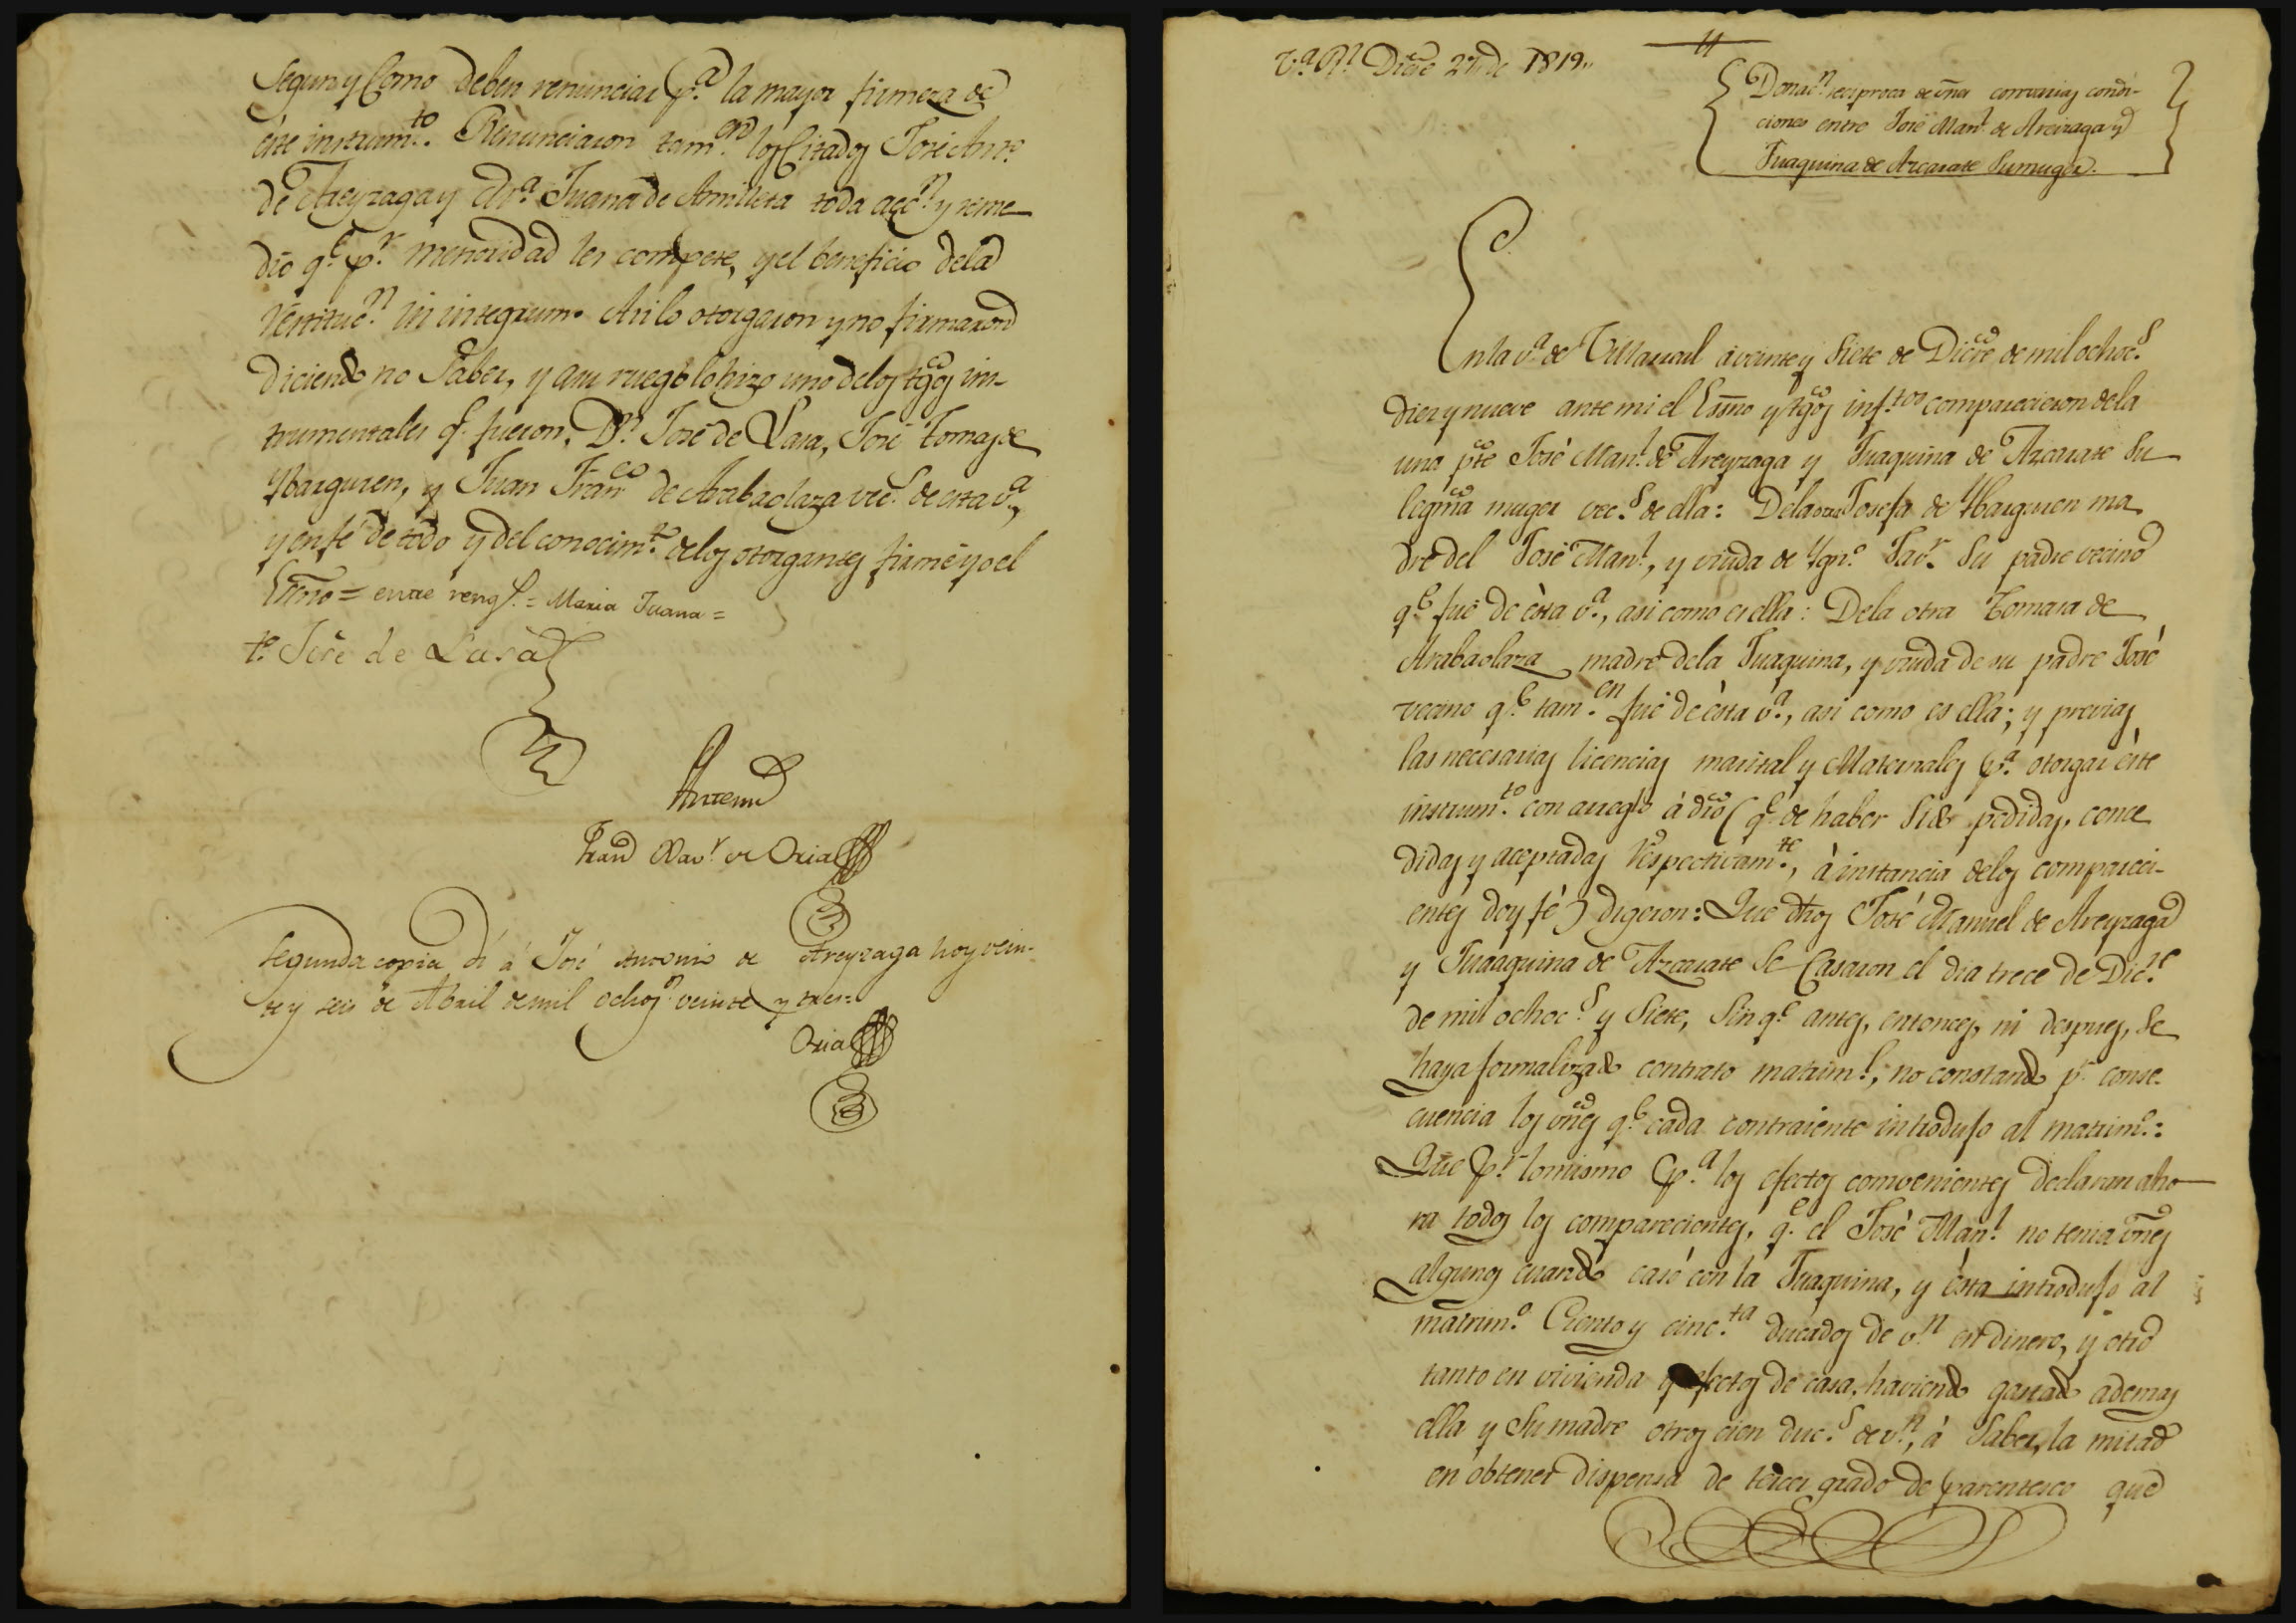 Segun y Como deben renunciar p.ª la mayor firmeza de
éste instrum.to. Renunciaron tam.en los Citados José Ant.º
de Areyzaga y M.ª Juana de Armilleta toda acc.n y reme
dio q.e p.r menoridad les compete, y el beneficio dela
restituc.n in integrum. Asi lo otorgaron y no firmaron
diciendo no Saber, y a su ruego lo hizo uno delos tgos ins-
trumentales q.e fueron, D.n José de Lasa, José Tomas de
Ybarguren, y Juan Fran.co de Arabaolaza vec.s de esta v.ª,
y en fé de todo y del conocim.to delos otorgantes firmé yo el
Essno = entre rengl.s = Maria Juana =
t.º José de Lasa
Antemi
Fran.co Xav.r de Oria
Segunda copia dí á José Antonio de Areyzaga hoy vein-
te y seis de Abril de mil ochos.s veinte y tres=
Oria
V.ª R.l Dicre 27 de 1819.,
Donac.n reciproca de vnes con varias condi-
ciones entre José Man.l de Areizaga y
Juaquina de Azcarate Su muger.
En la v.ª de Villareal á veinte y Siete de Dicre de mil ochoc.s
diez y nueve ante mi el Essno y tgos inf.tos comparecieron dela
una pte José Man.l de Areyzaga y Juaquina de Azcarate Su
legma muger vec.s de ella: Dela otra Josefa de Ybarguren ma
dre del José Man.l, y viuda de Ygn.º Jav.r Su padre vecino
q.e fué de ésta v.ª, asi como es ella: Dela otra Tomasa de
Arabaolaza madre dela Juaquina, y viuda de su padre José
vecino q.e tam.en fué de ésta v.ª, asi como es ella; y previas
las necesarias licencias marital y Maternales p.ª otorgar éste
instrum.to con arreglo á dro (q.e de haber Sido pedidas, conce
didas y aceptadas respectivam.te, á instancia delos compareci-
entes doy fé) digeron: Que dhos José Manuel de Areyzaga
y Juaaquina de Azcarate Se Casaron el dia trece de Dic.re
de mil ochoc.s y Siete, Sin q.e antes, entonces, ni despues, Se
haya formalizado contrato matrim.l, no constando p.r conse-
cuencia los vnes q.e cada contraiente introdujo al matrim.º:
Que p.r lo mismo p.ª los efectos convenientes declaran aho
ra todos los comparecientes, q.e el José Man.l no tenia vnes
algunos cuando casó con la Juaquina, y ésta introdujo al
matrim.º Ciento y cinc.ta ducados de v.n en dinero, y otro
tanto en vivienda y efectos de casa, haviendo gastado ademas
ella y Su madre otros cien duc.s de v.n, á Saber, la mitad
en obtener dispensa de tercer grado de parentesco que